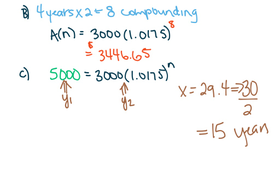 B) 4 years x 2 = 8 compounding
A(n) = 3000(1.0175)^8
= 3446.65
c) 5000 = 3000(1.0175)^n
y1 y2
x = 29.4 ⇒ 30
2
= 15 years